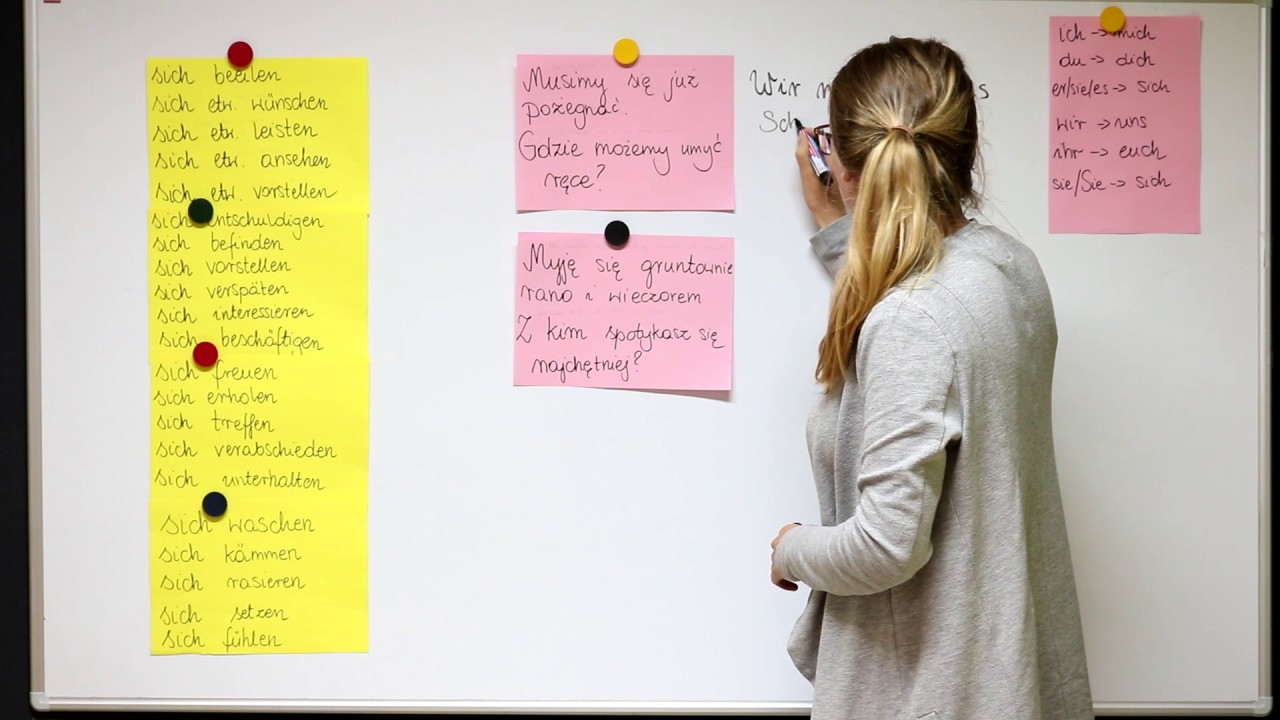 sich beeilen
sich etw. wünschen
sich etw. leisten
sich etw. ansehen
sich etw. vorstellen
sich entschuldigen
sich befinden
sich vorstellen
sich verspäten
sich interessieren
sich beschäftigen
sich freuen
sich erholen
sich treffen
sich verabschieden
sich unterhalten
sich waschen
sich kämmen
sich rasieren
sich setzen
sich fühlen
Musimy się już
pożegnać.
Gdzie możemy umyć
ręce?
Myję się gruntownie
rano i wieczorem
Z kim spotykasz się
najchętniej?
Wir
Sch
ich -> mich
du -> dich
er/sie/es -> sich
wir -> uns
ihr -> euch
sie/Sie -> sich